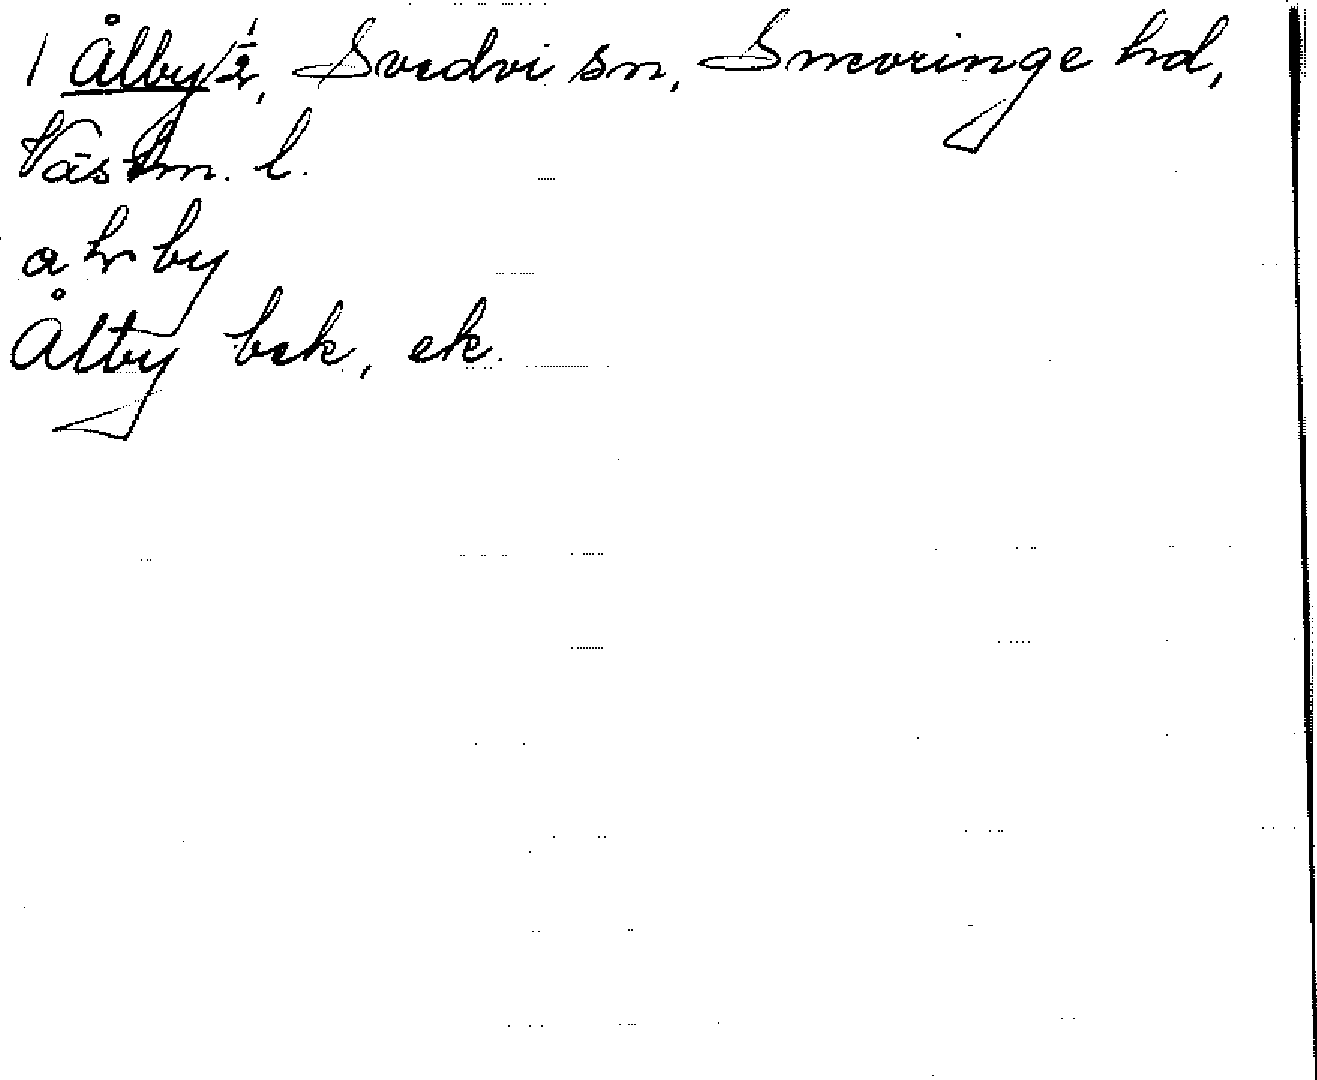 1 Ålby 1/2, Svedvi sn, Snevringe hd,
Västm. l.
ahrby
Ålby bek, ek.